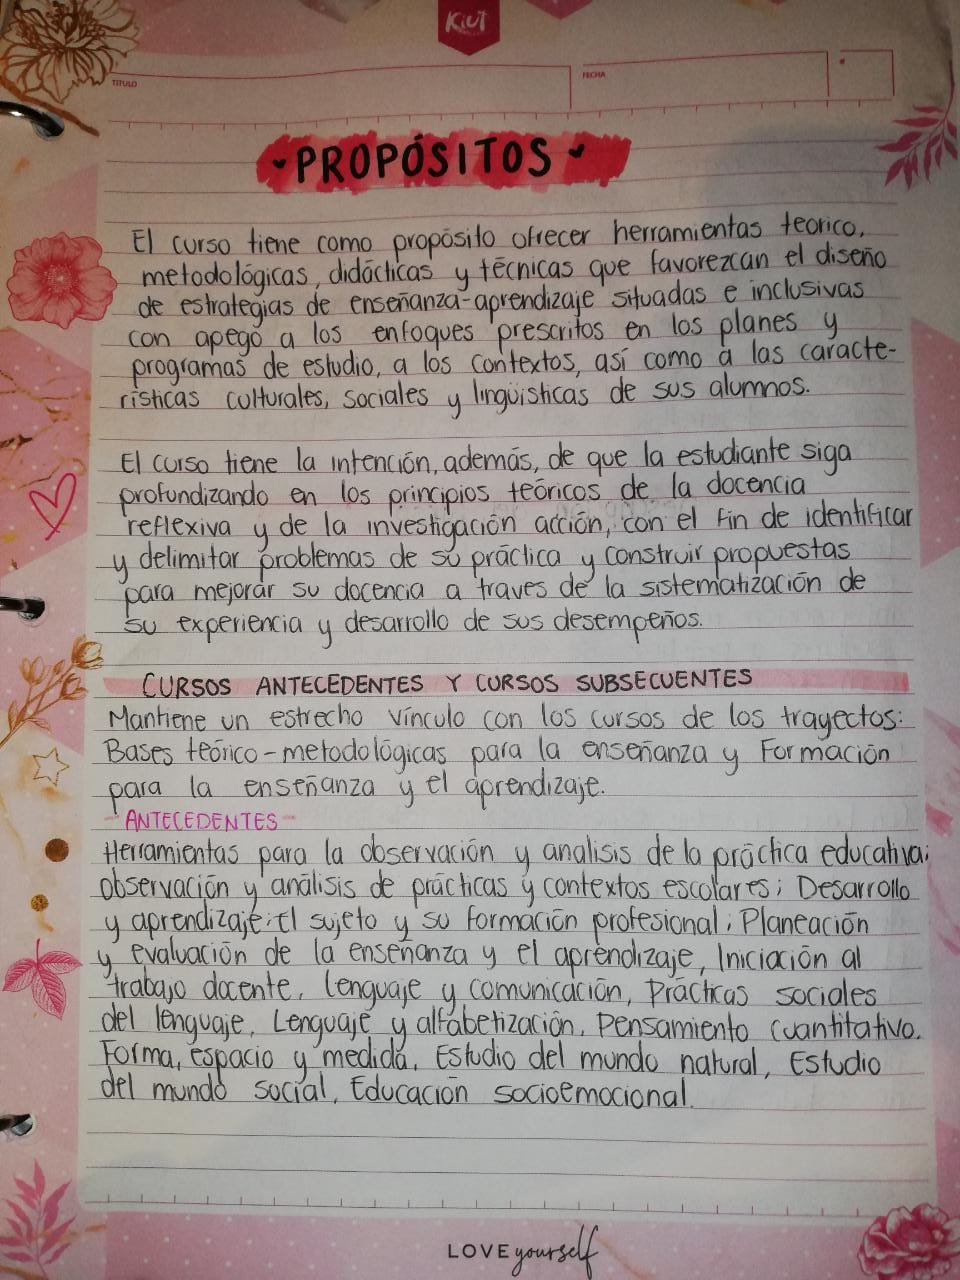 Kiut
TITULO
FECHA
PROPÓSITOS
El curso tiene como propósito ofrecer herramientas teorico,
metodológicas, didácticas y técnicas que favorezcan el diseño
de estrategias de enseñanza-aprendizaje situadas e inclusivas
con apego a los enfoques prescritos en los planes y
programas de estudio, a los contextos, así como a las caracte-
rísticas culturales, sociales y lingüisticas de sus alumnos.
El curso tiene la intención, además, de que la estudiante siga
profundizando en los principios teóricos de la docencia
reflexiva y de la investigación acción, con el fin de identificar
y delimitar problemas de su práctica y construir propuestas
para mejorar su docencia a traves de la sistematización de
su experiencia y desarrollo de sus desempeños.
CURSOS ANTECEDENTES Y CURSOS SUBSECUENTES
Mantiene un estrecho vínculo con los cursos de los trayectos:
Bases teórico-metodológicas para la enseñanza y Formación
para la enseñanza y el aprendizaje.
-ANTECEDENTES-
Herramientas para la observación y analisis de la práctica educativa;
observación y análisis de prácticas y contextos escolares; Desarrollo
y aprendizaje; El sujeto y su formación profesional; Planeación
y evaluación de la enseñanza y el aprendizaje, Iniciación al
trabajo docente, Lenguaje y comunicación, Prácticas sociales
del lenguaje, Lenguaje y alfabetización, Pensamiento cuantitativo.
Forma, espacio y medida, Estudio del mundo natural, Estudio
del mundo social, Educación socioemocional.
LOVE yourself